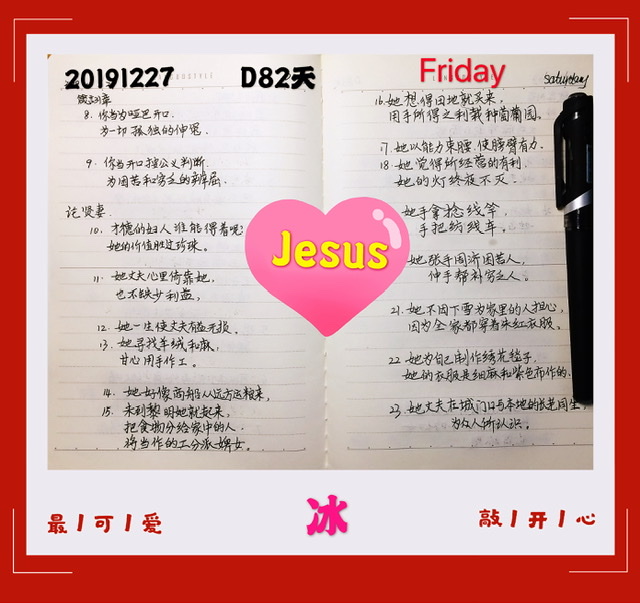 20191227
D82天
Friday
saturday
31章
8. 你当为哑巴开口.
为一切孤独的伸冤.
9. 你当开口按公义判断.
为困苦和穷乏的辨屈.
论贤妻
10. 才德的妇人谁能得着呢?
她的价值胜过珍珠。
11. 她丈夫心里倚靠她,
也不缺少利益,
12. 她一生使丈夫有益无损.
13. 她寻找羊绒和麻,
甘心用手作工。
14. 她好像商船从远方运粮来,
15. 未到黎明她就起来,
把食物分给家中的人.
将当作的工分派婢女。
16. 她想得田地就买来,
用手所得之利栽种葡萄园。
17. 她以能力束腰,使膀臂有力.
18. 她觉得所经营的有利.
她的灯终夜不灭.
她手拿捻线竿,
手把纺线车.
她张手周济困苦人,
伸手帮补穷乏人。
21. 她不因下雪为家里的人担心,
因为全家都穿着朱红衣服。
22. 她为自己制作绣花毯子,
她的衣服是细麻和紫色布作的.
23. 她丈夫在城门口与本地的长老同坐
为众人所认识。
Jesus
最|可|爱
冰
敲|开|心